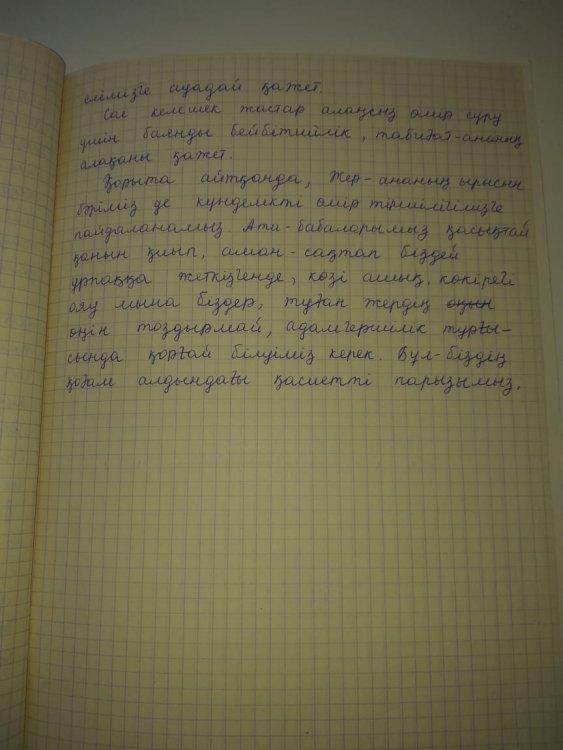 елімізге ауадай қажет.
Сол келешек жастар алаңсыз өмір сүру
үшін баянды бейбітшілік, табиғат-ананың
алақаны қажет.
Қорыта айтқанда, Жер-ананың ырысын
бәріміз де күнделікті өмір тіршілігімізге
пайдаланамыз. Ата-бабаларымыз қасықтай
қанын қиып, аман-сақтап біздей
ұрпаққа жеткізгенде, көзі ашық, көкірегі
ояу мына біздер, туған жердің оңын
өңін тоздырмай, адамгершілік тұрғы-
сында қорғай білуіміз керек. Бұл-біздің
қоғам алдындағы қасиетті парызымыз.